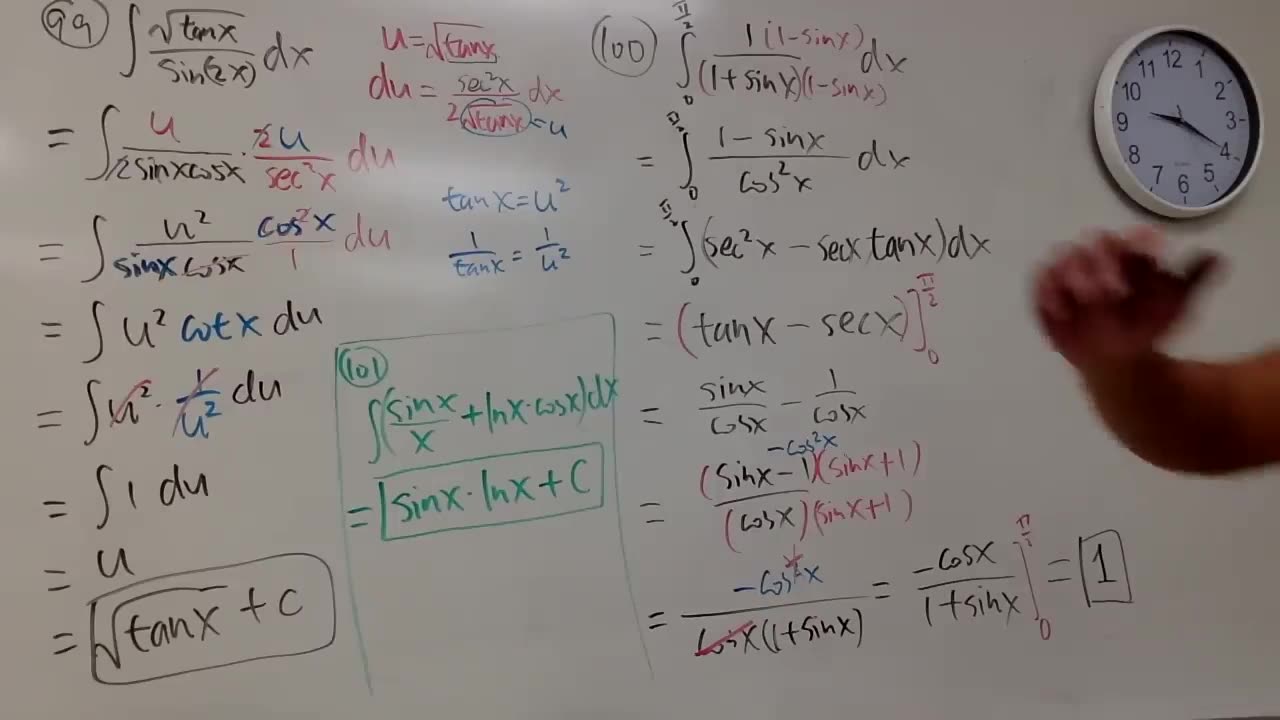 99 ∫ √tanx / sin(2x) dx
u=√tanx
du = sec²x / 2√tanx dx
=u
= ∫ u / 2sinxcosx · 2u / sec²x du
tanx=u²
1/tanx = 1/u²
= ∫ u² / sinx cosx cos²x / 1 du
= ∫ u² cotx du
= ∫ u² · 1/u² du
= ∫ 1 du
= u
= √tanx + C
101
∫(sinx/x + lnx·cosx)dx
= sinx·lnx + C
100 ∫₀^(π/2) 1(1-sinx) / (1+sinx)(1-sinx) dx
= ∫₀^(π/2) 1-sinx / cos²x dx
= ∫₀^(π/2) (sec²x - secx tanx)dx
= (tanx - secx)]₀^(π/2)
= sinx/cosx - 1/cosx
-cos²x
= (sinx-1)(sinx+1) / (cosx)(sinx+1)
= -cos²x / cosx(1+sinx) = -cosx / 1+sinx ]₀^(π/2) = 1
12
11 1
10 2
9 3
8 4
7 6 5